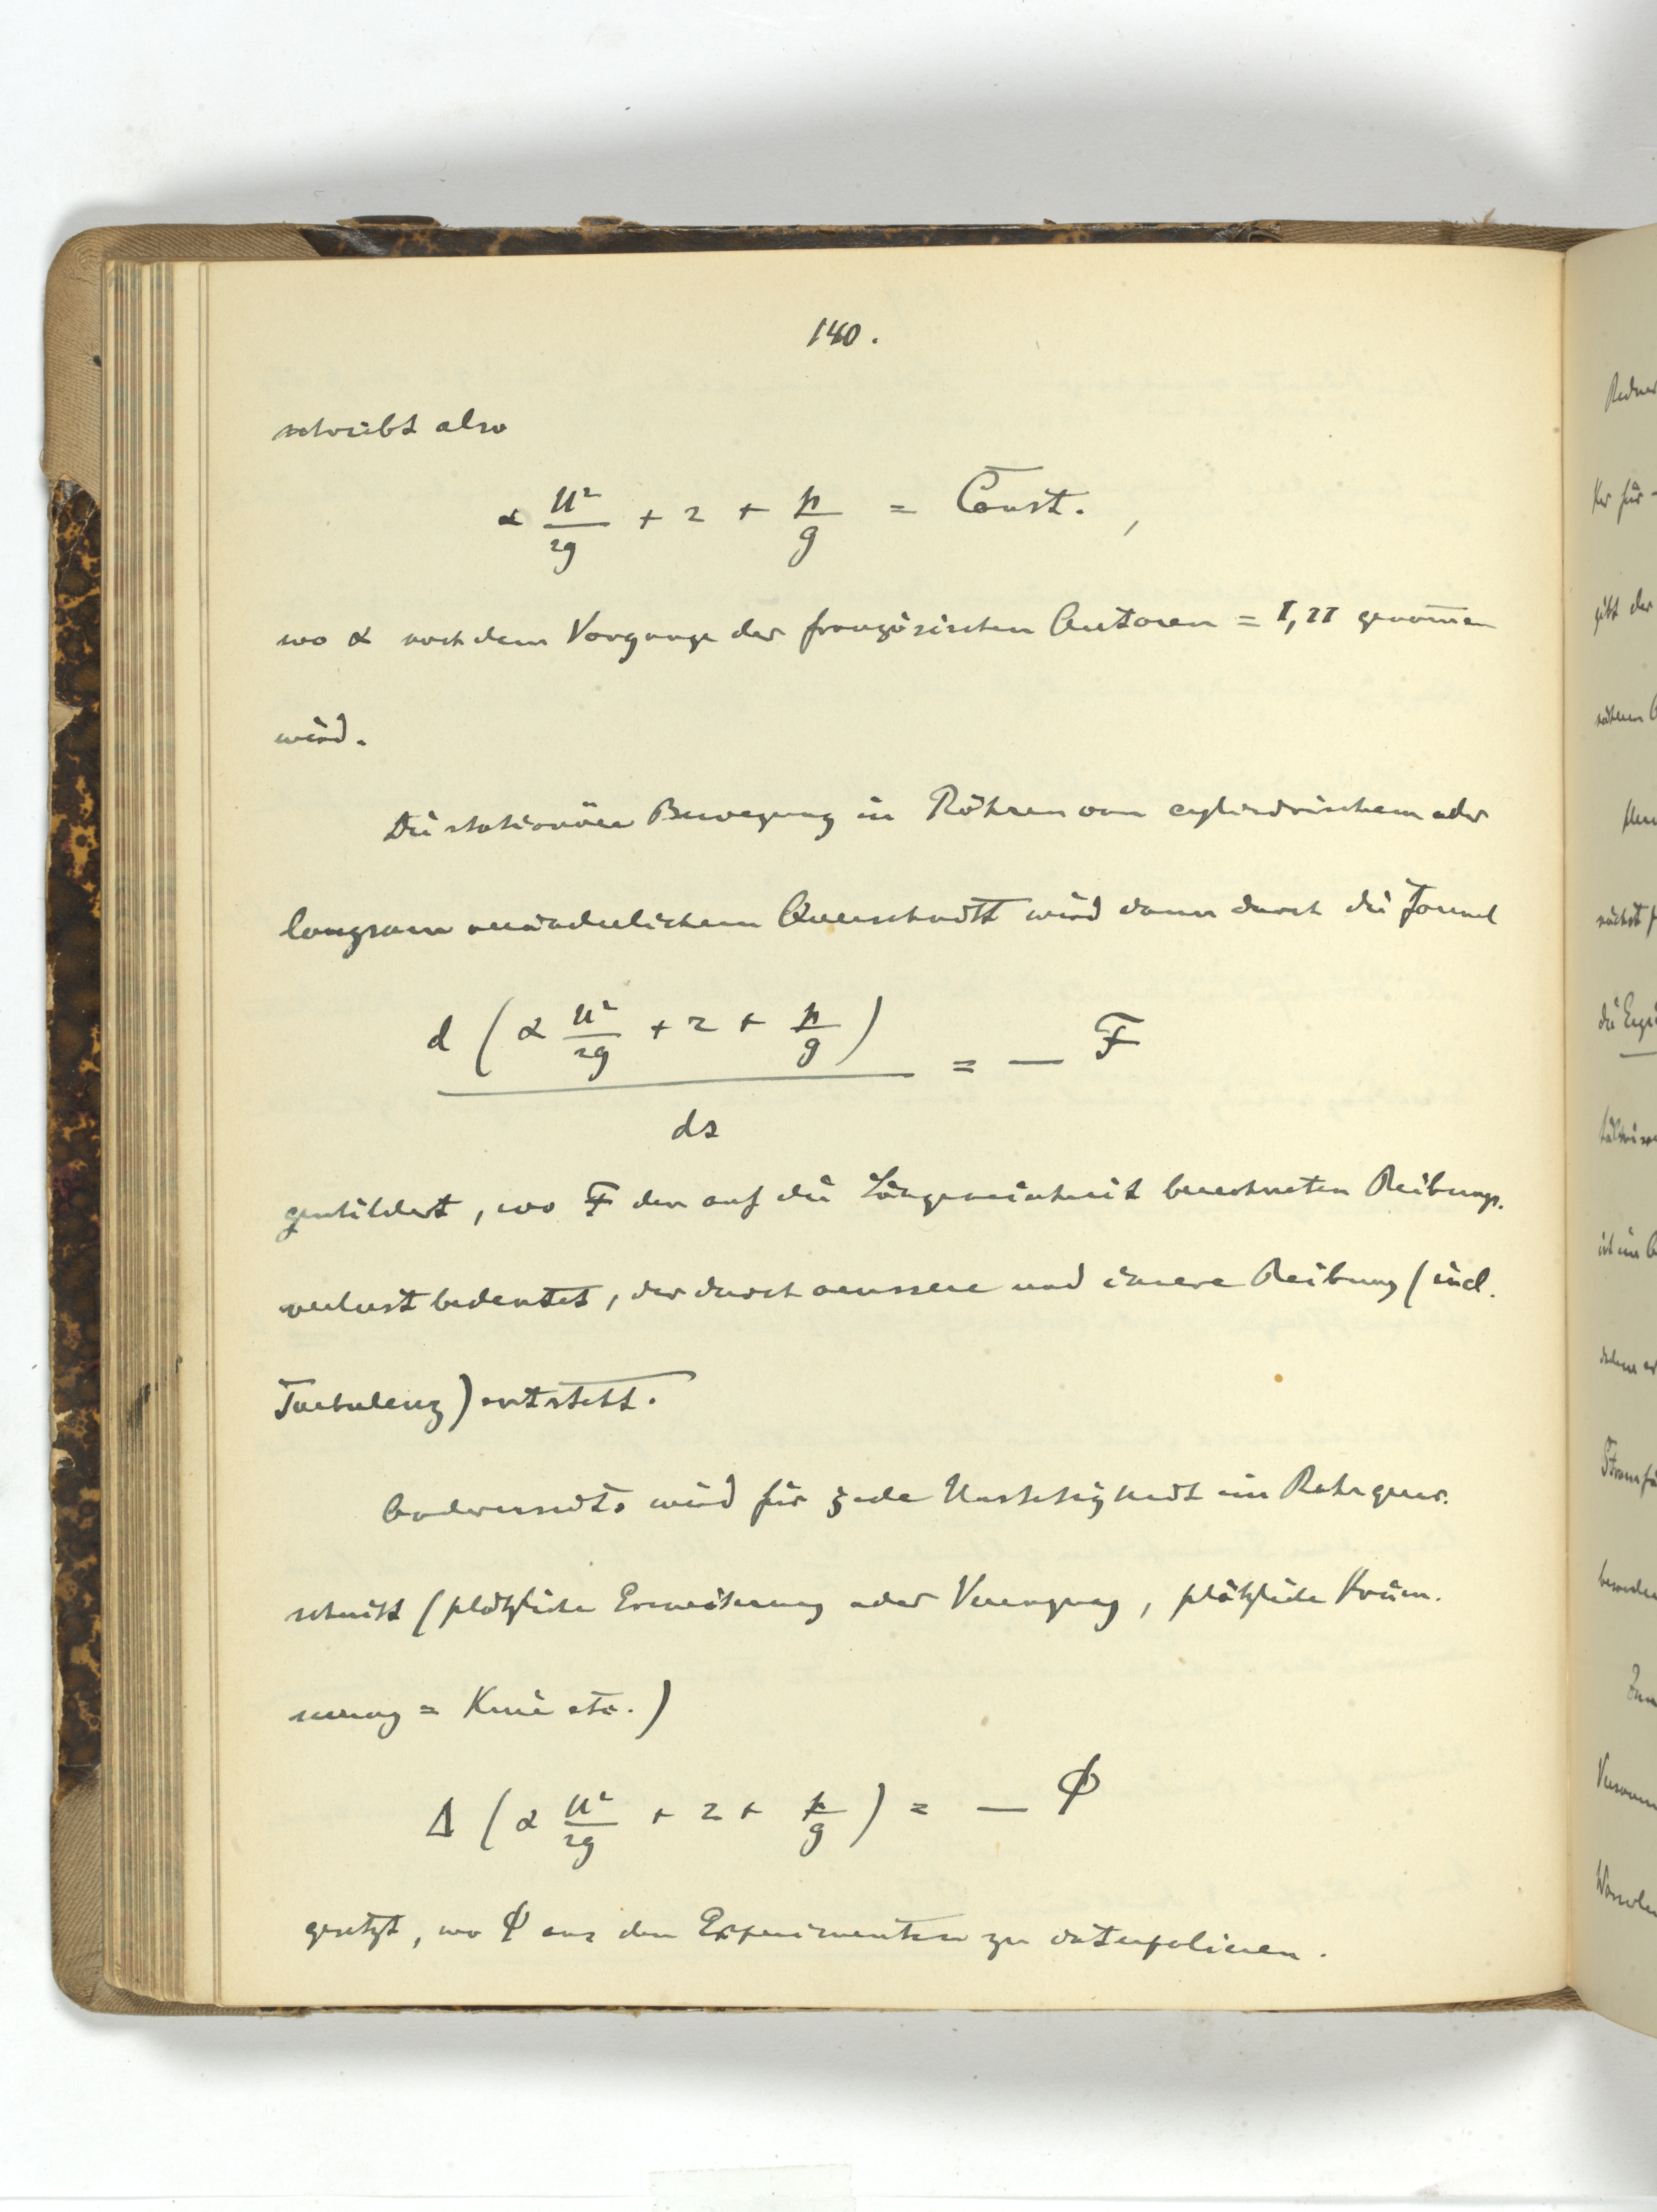 140.
schreibt also
α u²/2g + z + p/g = Const. ,
wo α nach dem Vorgange der französischen Autoren = 1,11 genom̅en
wird.
Die stationäre Bewegung in Röhren von cylindrischem oder
langsam veränderlichem Querschnitt wird dann durch die Formel
d (α u²/2g + z + p/g) / ds = — F
geschildert, wo F den auf die Längeneinheit berechneten Reibungs-
verlust bedeutet, der durch aeussere und innere Reibung (incl.
Turbulenz) entsteht.
Anderseits wird für jede Unstetigkeit im Rohrquer-
schnitt (plötzliche Erweiterung oder Verengung, plötzliche Krüm-
mung = Knie etc.)
Δ (α u²/2g + z + p/g) = — Φ
gesetzt, wo Φ aus den Experimenten zu interpolieren.